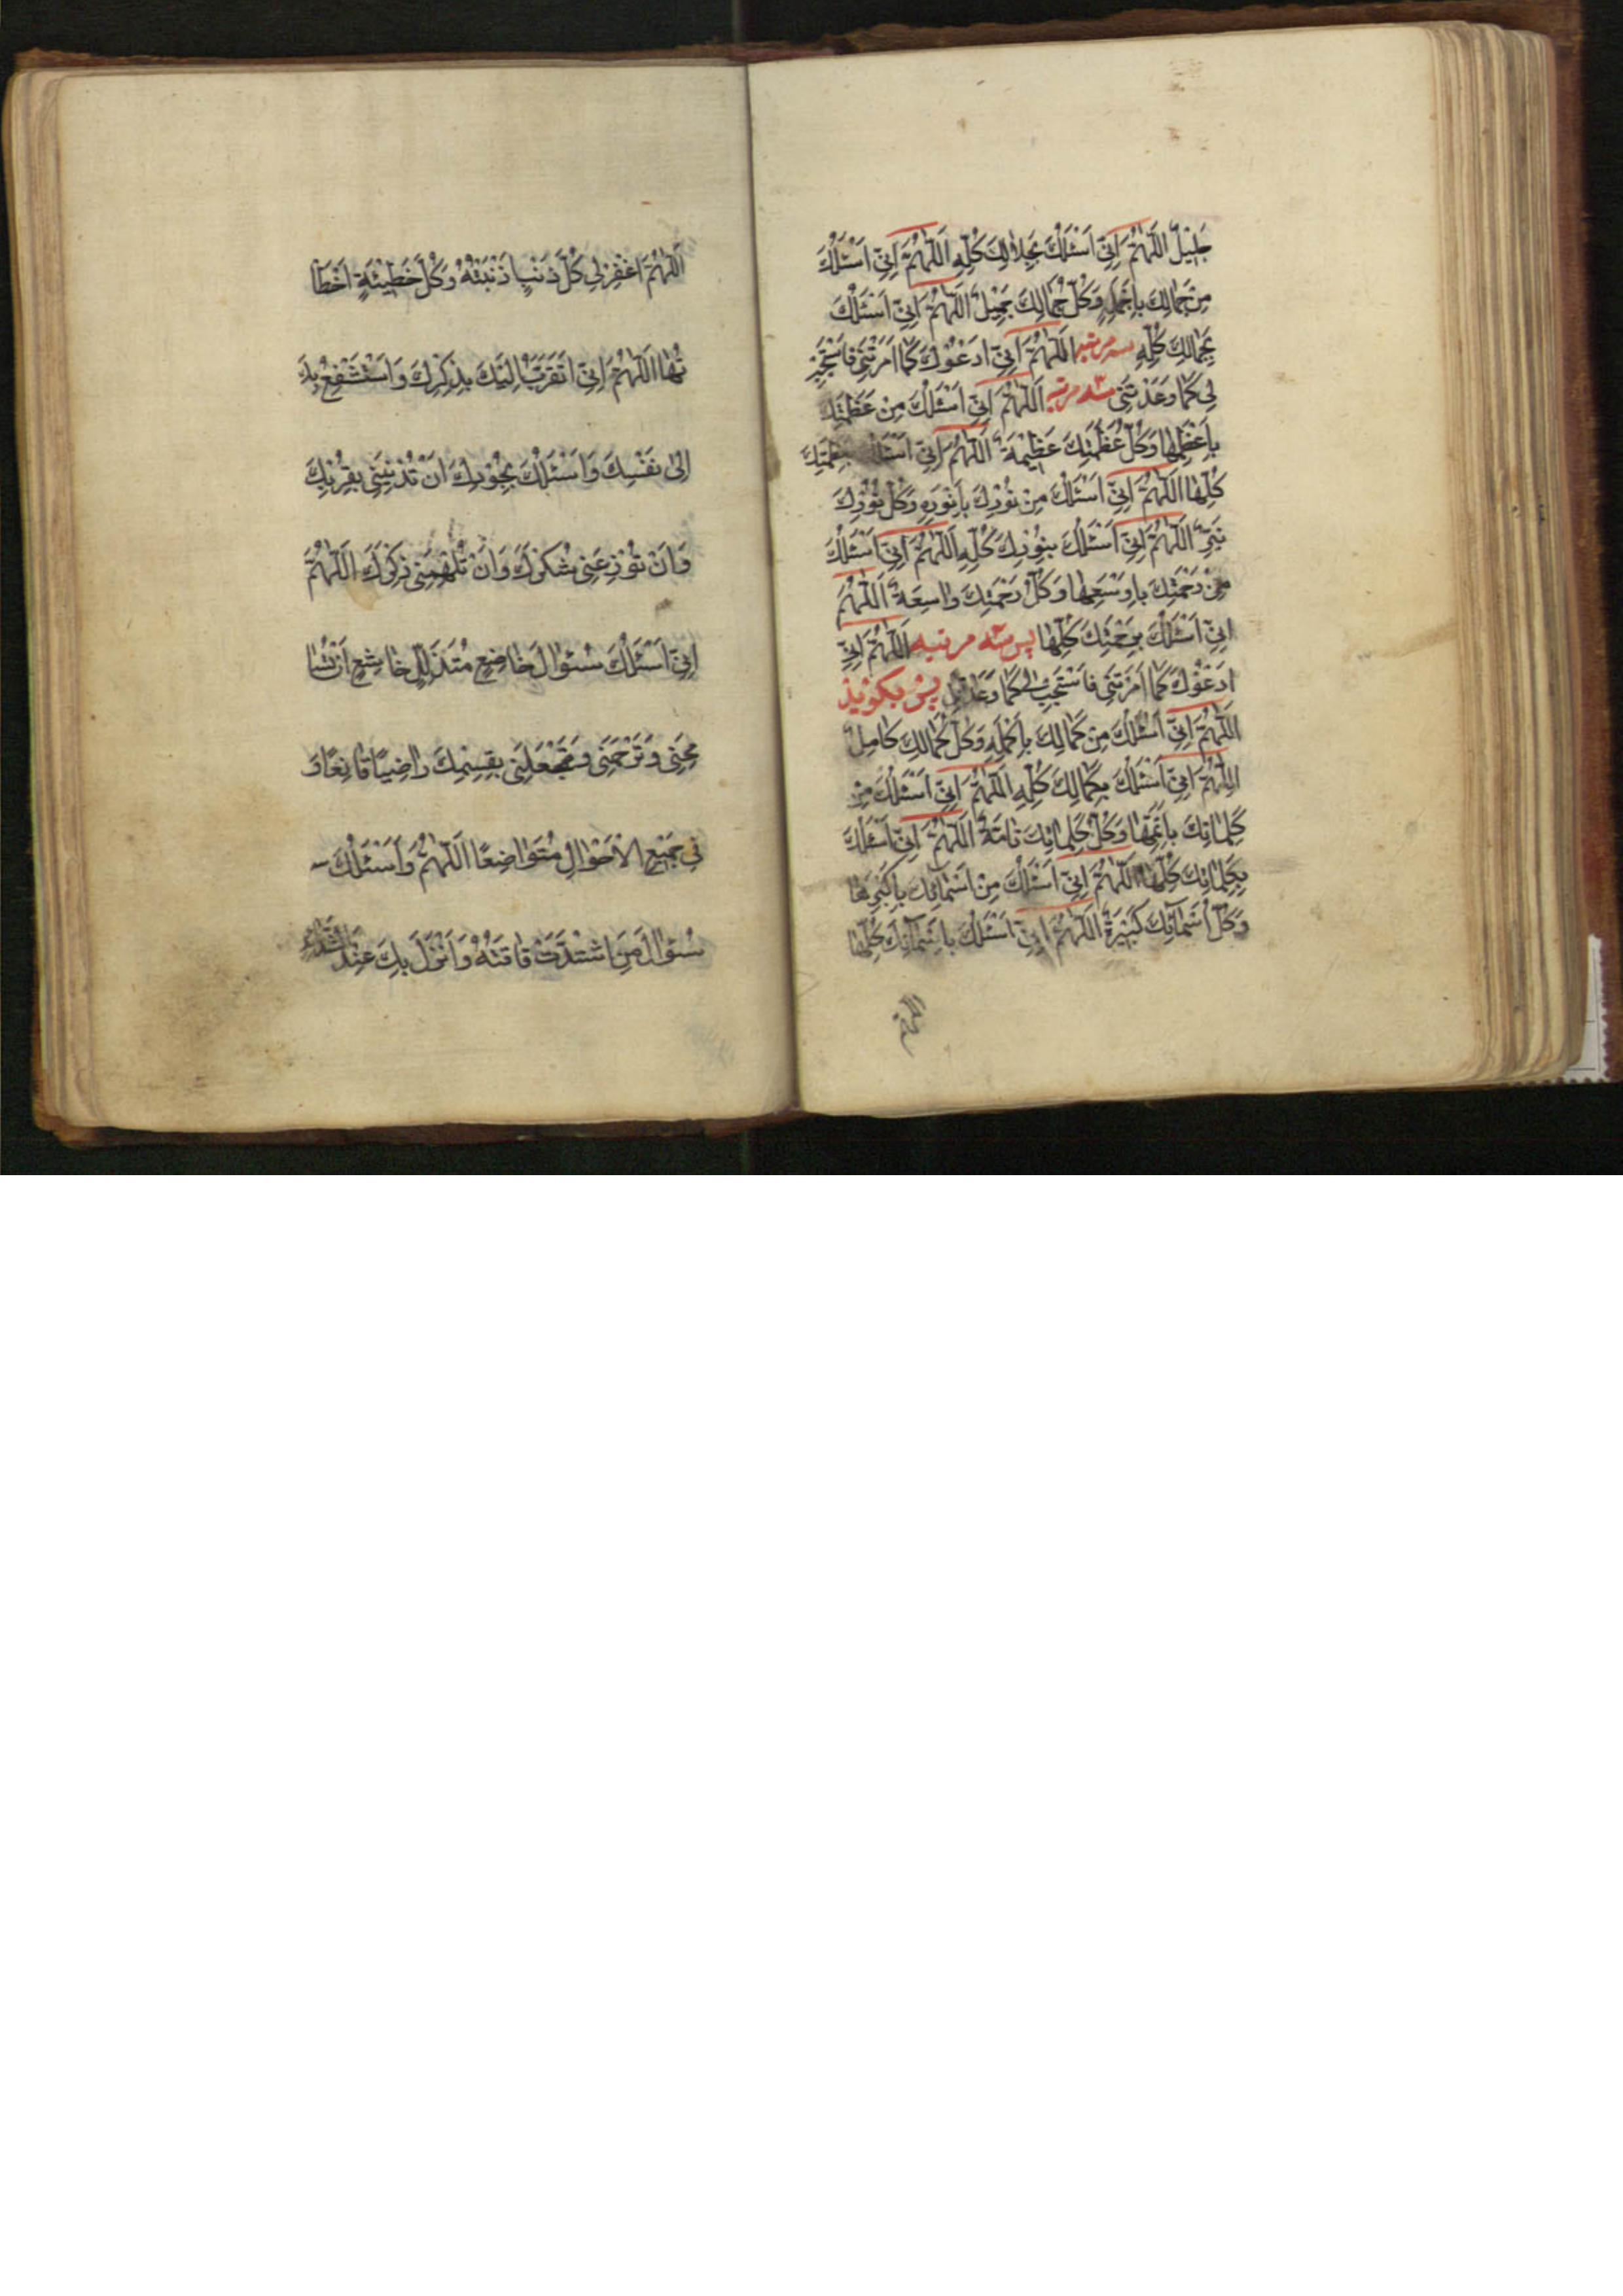 جَلِيْلٌ اَللّٰهُمَّ اِنّي اَسْئَلُكَ بِجَلالِكَ كُلِّهِ اَللّٰهُمَّ اِنّي اَسْئَلُكَ
مِنْ جَمالِكَ بِاَجْمَلِهِ وَكُلُّ جَمالِكَ جَمِيْلٌ اَللّٰهُمَّ اِنّي اَسْئَلُكَ
بِجَمالِكَ كُلِّهِ سه مرتبه اَللّٰهُمَّ اِنّي اَدْعُوْكَ كَما اَمَرْتَنى فَاسْتَجِبْ
لِي كَما وَعَدْتَنى سه مرتبه اَللّٰهُمَّ اِنّي اَسْئَلُكَ مِنْ عَظَمَتِكَ
بِاَعْظَمِها وَكُلُّ عَظَمَتِكَ عَظِيْمَةٌ اَللّٰهُمَّ اِنّي اَسْئَلُكَ بِعَظَمَتِكَ
كُلِّها اَللّٰهُمَّ اِنّي اَسْئَلُكَ مِنْ نُوْرِكَ بِاَنْوَرِهِ وَكُلُّ نُوْرِكَ
نَيِّرٌ اَللّٰهُمَّ اِنّي اَسْئَلُكَ بِنُوْرِكَ كُلِّهِ اَللّٰهُمَّ اِنّي اَسْئَلُكَ
مِنْ رَحْمَتِكَ بِاَوْسَعِها وَكُلُّ رَحْمَتِكَ واسِعَةٌ اَللّٰهُمَّ
اِنّي اَسْئَلُكَ بِرَحْمَتِكَ كُلِّها پس سه مرتبه اَللّٰهُمَّ اِنّي
اَدْعُوْكَ كَما اَمَرْتَنى فَاسْتَجِبْ لى كَما وَعَدْتَنى پس بكويند
اَللّٰهُمَّ اِنّي اَسْئَلُكَ مِنْ كَمالِكَ بِاَكْمَلِهِ وَكُلُّ كَمالِكَ كامِلٌ
اَللّٰهُمَّ اِنّي اَسْئَلُكَ بِكَمالِكَ كُلِّهِ اَللّٰهُمَّ اِنّي اَسْئَلُكَ مِنْ
كَلِماتِكَ بِاَتَمِّها وَكُلُّ كَلِماتِكَ تامَّةٌ اَللّٰهُمَّ اِنّي اَسْئَلُكَ
بِكَلِماتِكَ كُلِّها اَللّٰهُمَّ اِنّي اَسْئَلُكَ مِنْ اَسْمائِكَ بِاَكْبَرِها
وَكُلُّ اَسْمآئِكَ كَبِيْرَةٌ اَللّٰهُمَّ اِنّي اَسْئَلُكَ بِاَسْمآئِكَ كُلِّها
اَللّٰهُمَّ اغْفِرْ لِي كُلَّ ذَنْبٍ اَذْنَبْتُهُ وَكُلَّ خَطِيْئَةٍ اَخْطَأْ
تُها اَللّٰهُمَّ اِنّي اَتَقَرَّبُ اِلَيْكَ بِذِكْرِكَ وَاَسْتَشْفِعُ بِكَ
اِلى نَفْسِكَ وَاَسْئَلُكَ بِجُوْدِكَ اَنْ تُدْنِيَنى بِقُرْبِكَ
وَاَنْ تُوْزِعَنى شُكْرَكَ وَاَنْ تُلْهِمَنى ذِكْرَكَ اَللّٰهُمَّ
اِنّي اَسْئَلُكَ سُئوالَ خاضِعٍ مُتَذَلِّلٍ خاشِعٍ اَنْ تُسا
مِحَنى وَتَرْحَمَنى وَتَجْعَلَنى بِقِسْمِكَ راضِيًا قانِعًا وَ
فى جَمِيْعِ الْاَحْوالِ مُتَواضِعًا اَللّٰهُمَّ وَاَسْئَلُكَ
سُئوالَ مَنِ اشْتَدَّتْ فاقَتُهُ وَاَنْزَلَ بِكَ عِنْدَ الشَّدائِ